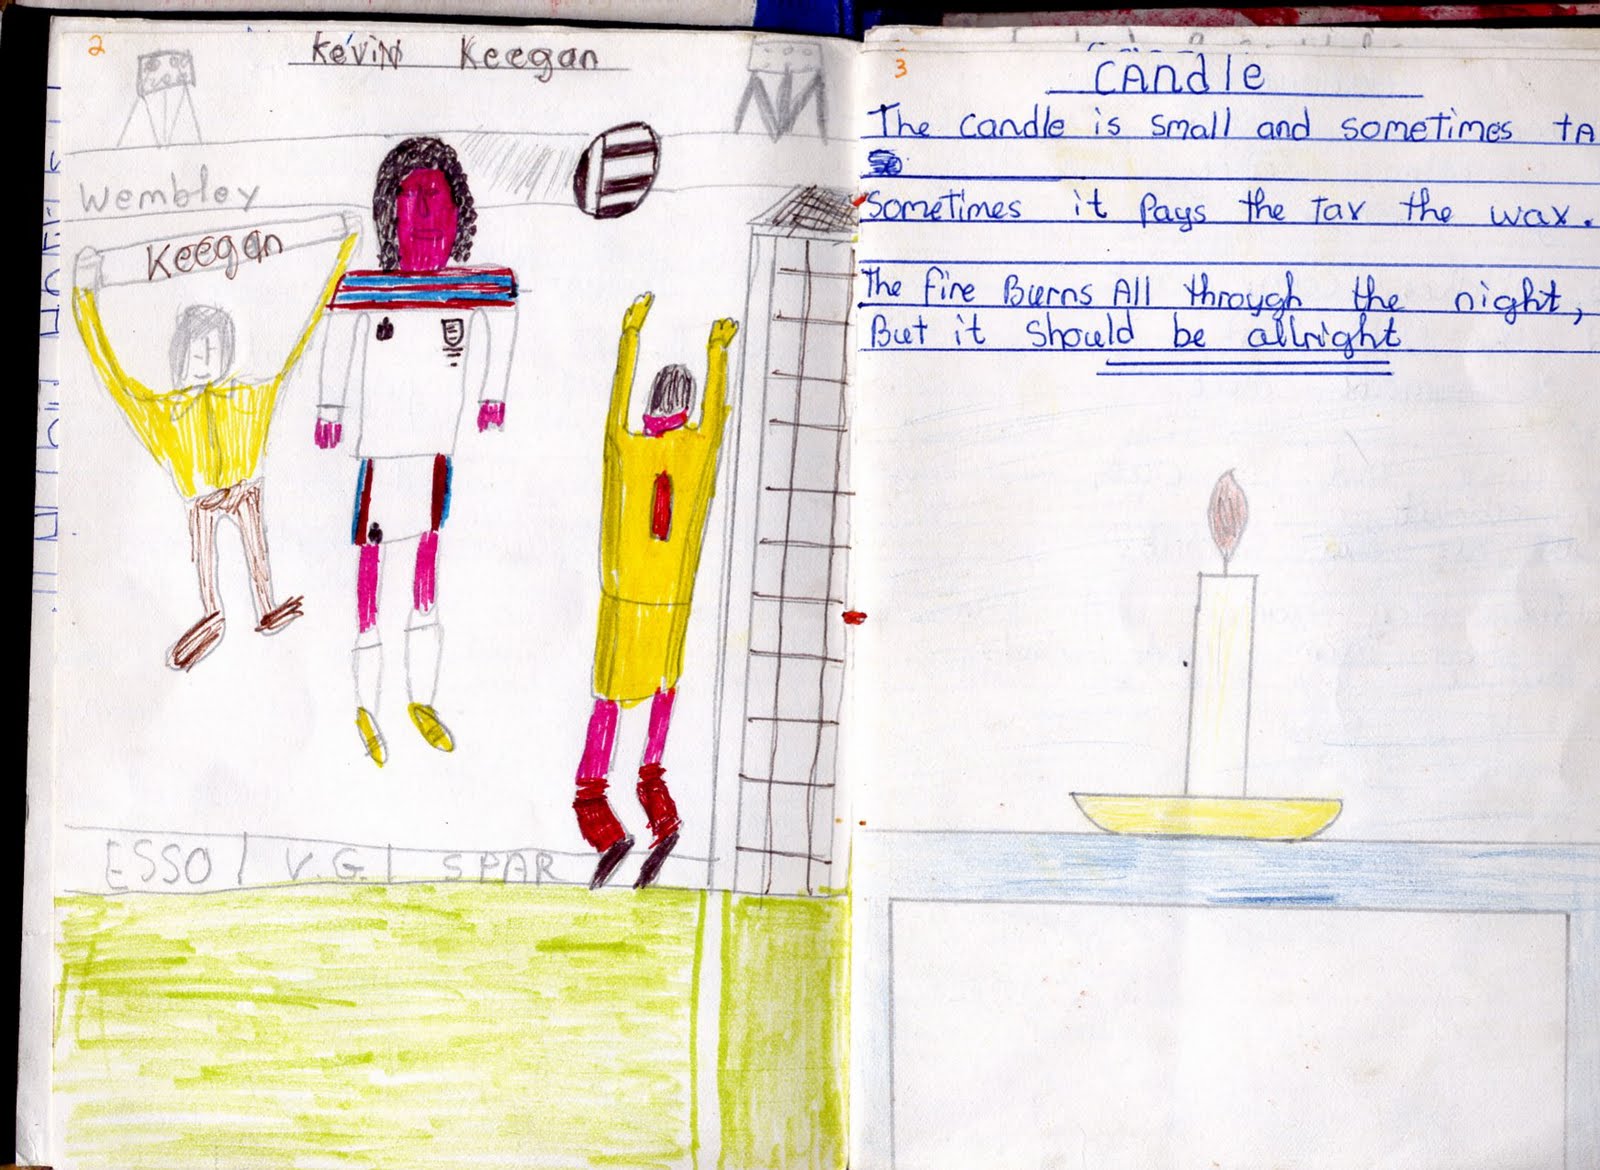 2
Kevin Keegan
Wembley
Keegan
ESSO V.G. SPAR
3
CANdle
The candle is small and sometimes tA
Sometimes it Pays the tax the wax.
The fire Burns All through the night,
But it should be allright